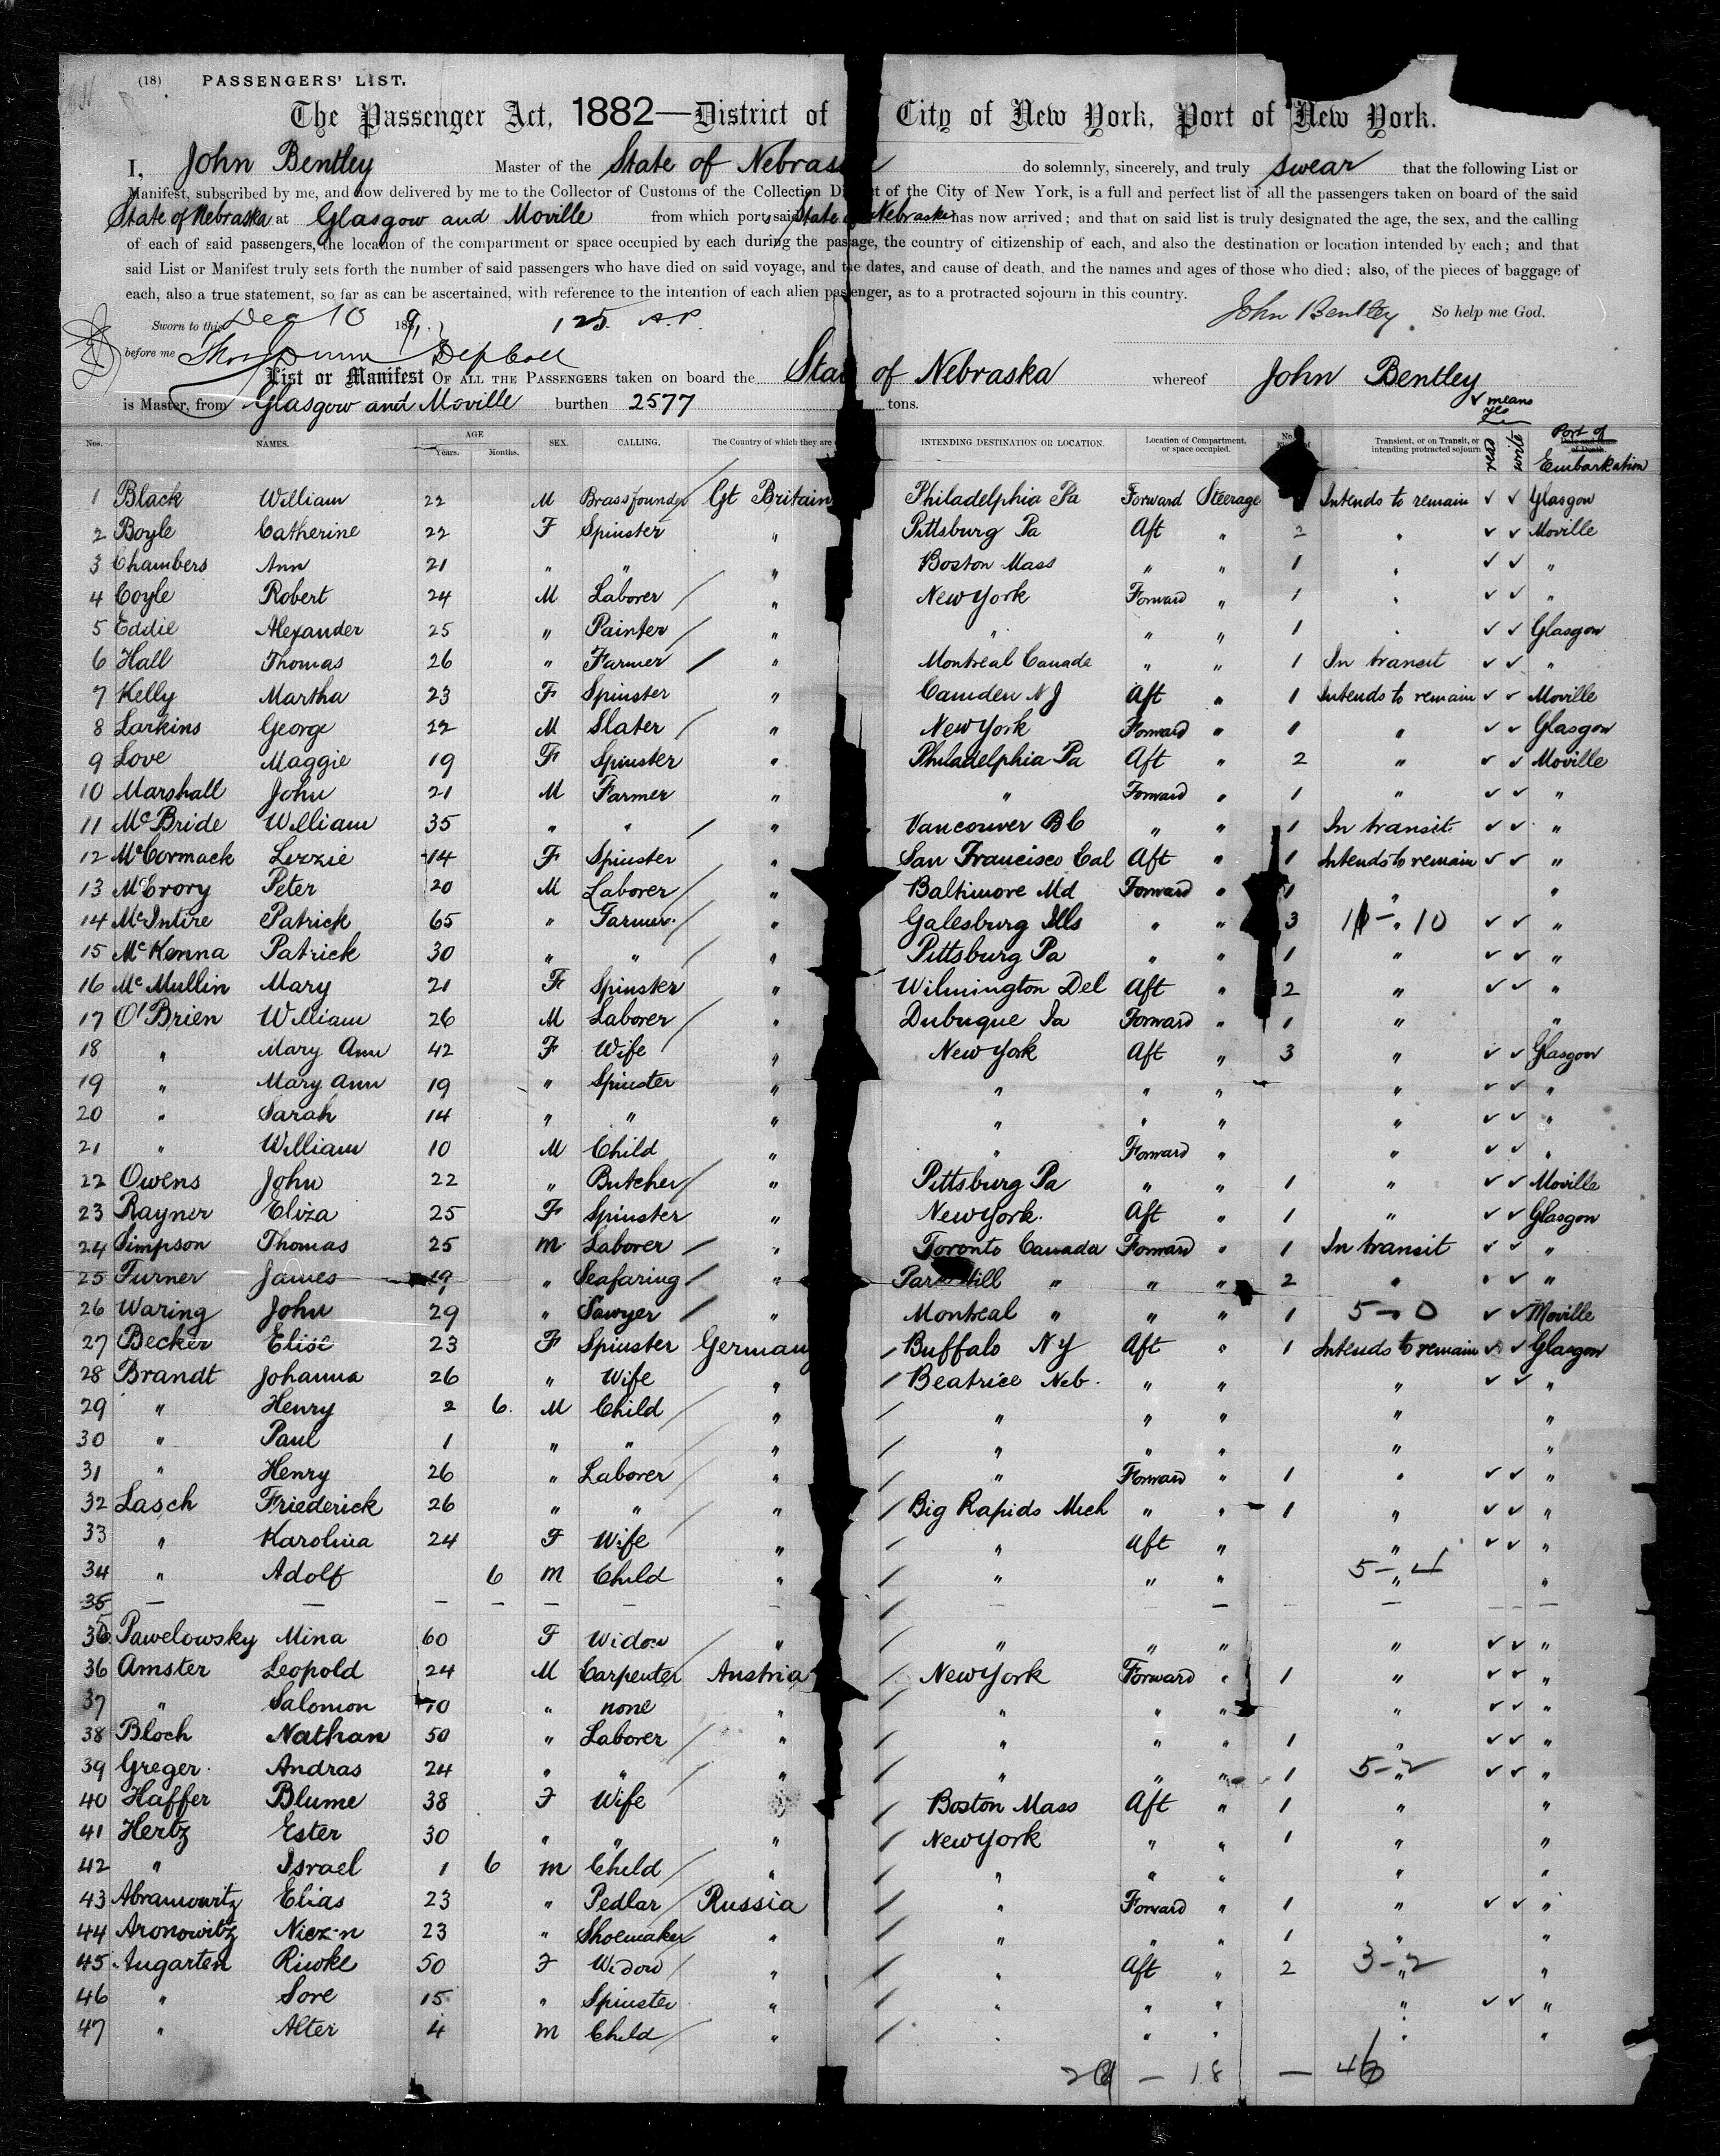 (18) PASSENGERS' LIST.
The Passenger Act, 1882—District of City of New York, Port of New York.
I, John Bentley Master of the State of Nebraska do solemnly, sincerely, and truly swear that the following List or
Manifest, subscribed by me, and now delivered by me to the Collector of Customs of the Collection District of the City of New York, is a full and perfect list of all the passengers taken on board of the said
State of Nebraska at Glasgow and Moville from which port said State of Nebraska has now arrived; and that on said list is truly designated the age, the sex, and the calling
of each of said passengers, the location of the compartment or space occupied by each during the passage, the country of citizenship of each, and also the destination or location intended by each; and that
said List or Manifest truly sets forth the number of said passengers who have died on said voyage, and the dates, and cause of death, and the names and ages of those who died; also, of the pieces of baggage of
each, also a true statement, so far as can be ascertained, with reference to the intention of each alien passenger, as to a protracted sojourn in this country.
John Bentley So help me God.
Sworn to this Dec 10 1891, 125. A.P.
before me Thos Dunn Dep Coll
List or Manifest OF ALL THE PASSENGERS taken on board the State of Nebraska whereof John Bentley
is Master, from Glasgow and Moville burthen 2577 tons.
✓ means yes
Nos. NAMES. AGE Years. Months. SEX. CALLING. The Country of which they are INTENDING DESTINATION OR LOCATION. Location of Compartment, or space occupied. Transient, or on Transit, or intending protracted sojourn read write Port of Embarkation
1 Black William 22 M Brassfounder / Gt Britain Philadelphia Pa Forward Steerage Intends to remain ✓ ✓ Glasgow
2 Boyle Catherine 22 F Spinster " Pittsburg Pa Aft " 2 " ✓ ✓ Moville
3 Chambers Ann 21 " " " Boston Mass " " 1 " ✓ ✓ "
4 Coyle Robert 24 M Laborer / " New York Forward " 1 " ✓ ✓ "
5 Eddie Alexander 25 " Painter / " " " " 1 " ✓ ✓ Glasgow
6 Hall Thomas 26 " Farmer / " Montreal Canada " " 1 In transit ✓ ✓ "
7 Kelly Martha 23 F Spinster " Camden N J Aft " 1 Intends to remain ✓ ✓ Moville
8 Larkins George 22 M Slater / " New York Forward " 1 " ✓ ✓ Glasgow
9 Love Maggie 19 F Spinster " Philadelphia Pa Aft " 2 " ✓ ✓ Moville
10 Marshall John 21 M Farmer " " Forward " 1 " ✓ ✓ "
11 McBride William 35 " " / " Vancouver BC " " 1 In transit ✓ ✓ "
12 McCormack Lizzie 14 F Spinster " San Francisco Cal Aft " 1 Intends to remain ✓ ✓ "
13 McCrory Peter 20 M Laborer / " Baltimore Md Forward " 1 " "
14 McIntire Patrick 65 " Farmer / " Galesburg Ills " " 3 " 10 ✓ ✓ "
15 McKenna Patrick 30 " " / " Pittsburg Pa " " 1 " ✓ ✓ "
16 McMullin Mary 21 F Spinster " Wilmington Del Aft " 2 " ✓ ✓ "
17 O'Brien William 26 M Laborer / " Dubuque Ia Forward " 1 " "
18 " Mary Ann 42 F Wife " New York Aft " 3 " ✓ ✓ Glasgow
19 " Mary Ann 19 " Spinster " " " " " ✓ ✓ "
20 " Sarah 14 " " " " " " " ✓ ✓ "
21 " William 10 M Child " " Forward " " ✓ ✓ "
22 Owens John 22 " Butcher / " Pittsburg Pa " " 1 " ✓ ✓ Moville
23 Rayner Eliza 25 F Spinster " New York. Aft " 1 " ✓ ✓ Glasgow
24 Simpson Thomas 25 M Laborer / " Toronto Canada Forward " 1 In transit ✓ ✓ "
25 Turner James 19 " Seafaring / " Park Hill " " " 2 " ✓ ✓ "
26 Waring John 29 " Sawyer / " Montreal " " " 1 5-0 ✓ ✓ Moville
27 Becker Elise 23 F Spinster Germany / Buffalo N Y Aft " 1 Intends to remain ✓ ✓ Glasgow
28 Brandt Johanna 26 " Wife " / Beatrice Neb. " " " ✓ ✓ "
29 " Henry 2 6 M Child / " / " " " " "
30 " Paul 1 " " " / " " " " "
31 " Henry 26 " Laborer / " / " Forward " 1 " ✓ ✓ "
32 Lasch Friederick 26 " " / " / Big Rapids Mich " " 1 " ✓ ✓ "
33 " Karolina 24 F Wife " / " Aft " " ✓ ✓ "
34 " Adolf 6 M Child " / " " " 5-4 " "
35 — — — — — — / — — — — — —
35 Pawelowsky Mina 60 F Widow / " / " " " " ✓ ✓ "
36 Amster Leopold 24 M Carpenter Austria / New York Forward " 1 " ✓ ✓ "
37 " Salomon 70 " none " / " " " " ✓ ✓ "
38 Bloch Nathan 50 " Laborer / " / " " " 1 " ✓ ✓ "
39 Greger Andras 24 " " / " / " " " 1 5-2 " ✓ ✓ "
40 Haffer Blume 38 F Wife / Boston Mass Aft " 1 " "
41 Hertz Ester 30 " " " / New York " " 1 " "
42 " Israel 1 6 M Child / " / " " " " "
43 Abramowitz Elias 23 " Pedlar / Russia / " Forward " 1 " ✓ ✓ "
44 Aronowitz 23 " Shoemaker / " / " " " 1 " "
45 Augarten Riwke 50 F Widow / " / " Aft " 2 3-2 " "
46 " Sore 15 " Spinster " / " " " " ✓ ✓ "
47 " Alter 4 M Child / " / " " " " "
— 18 — 46